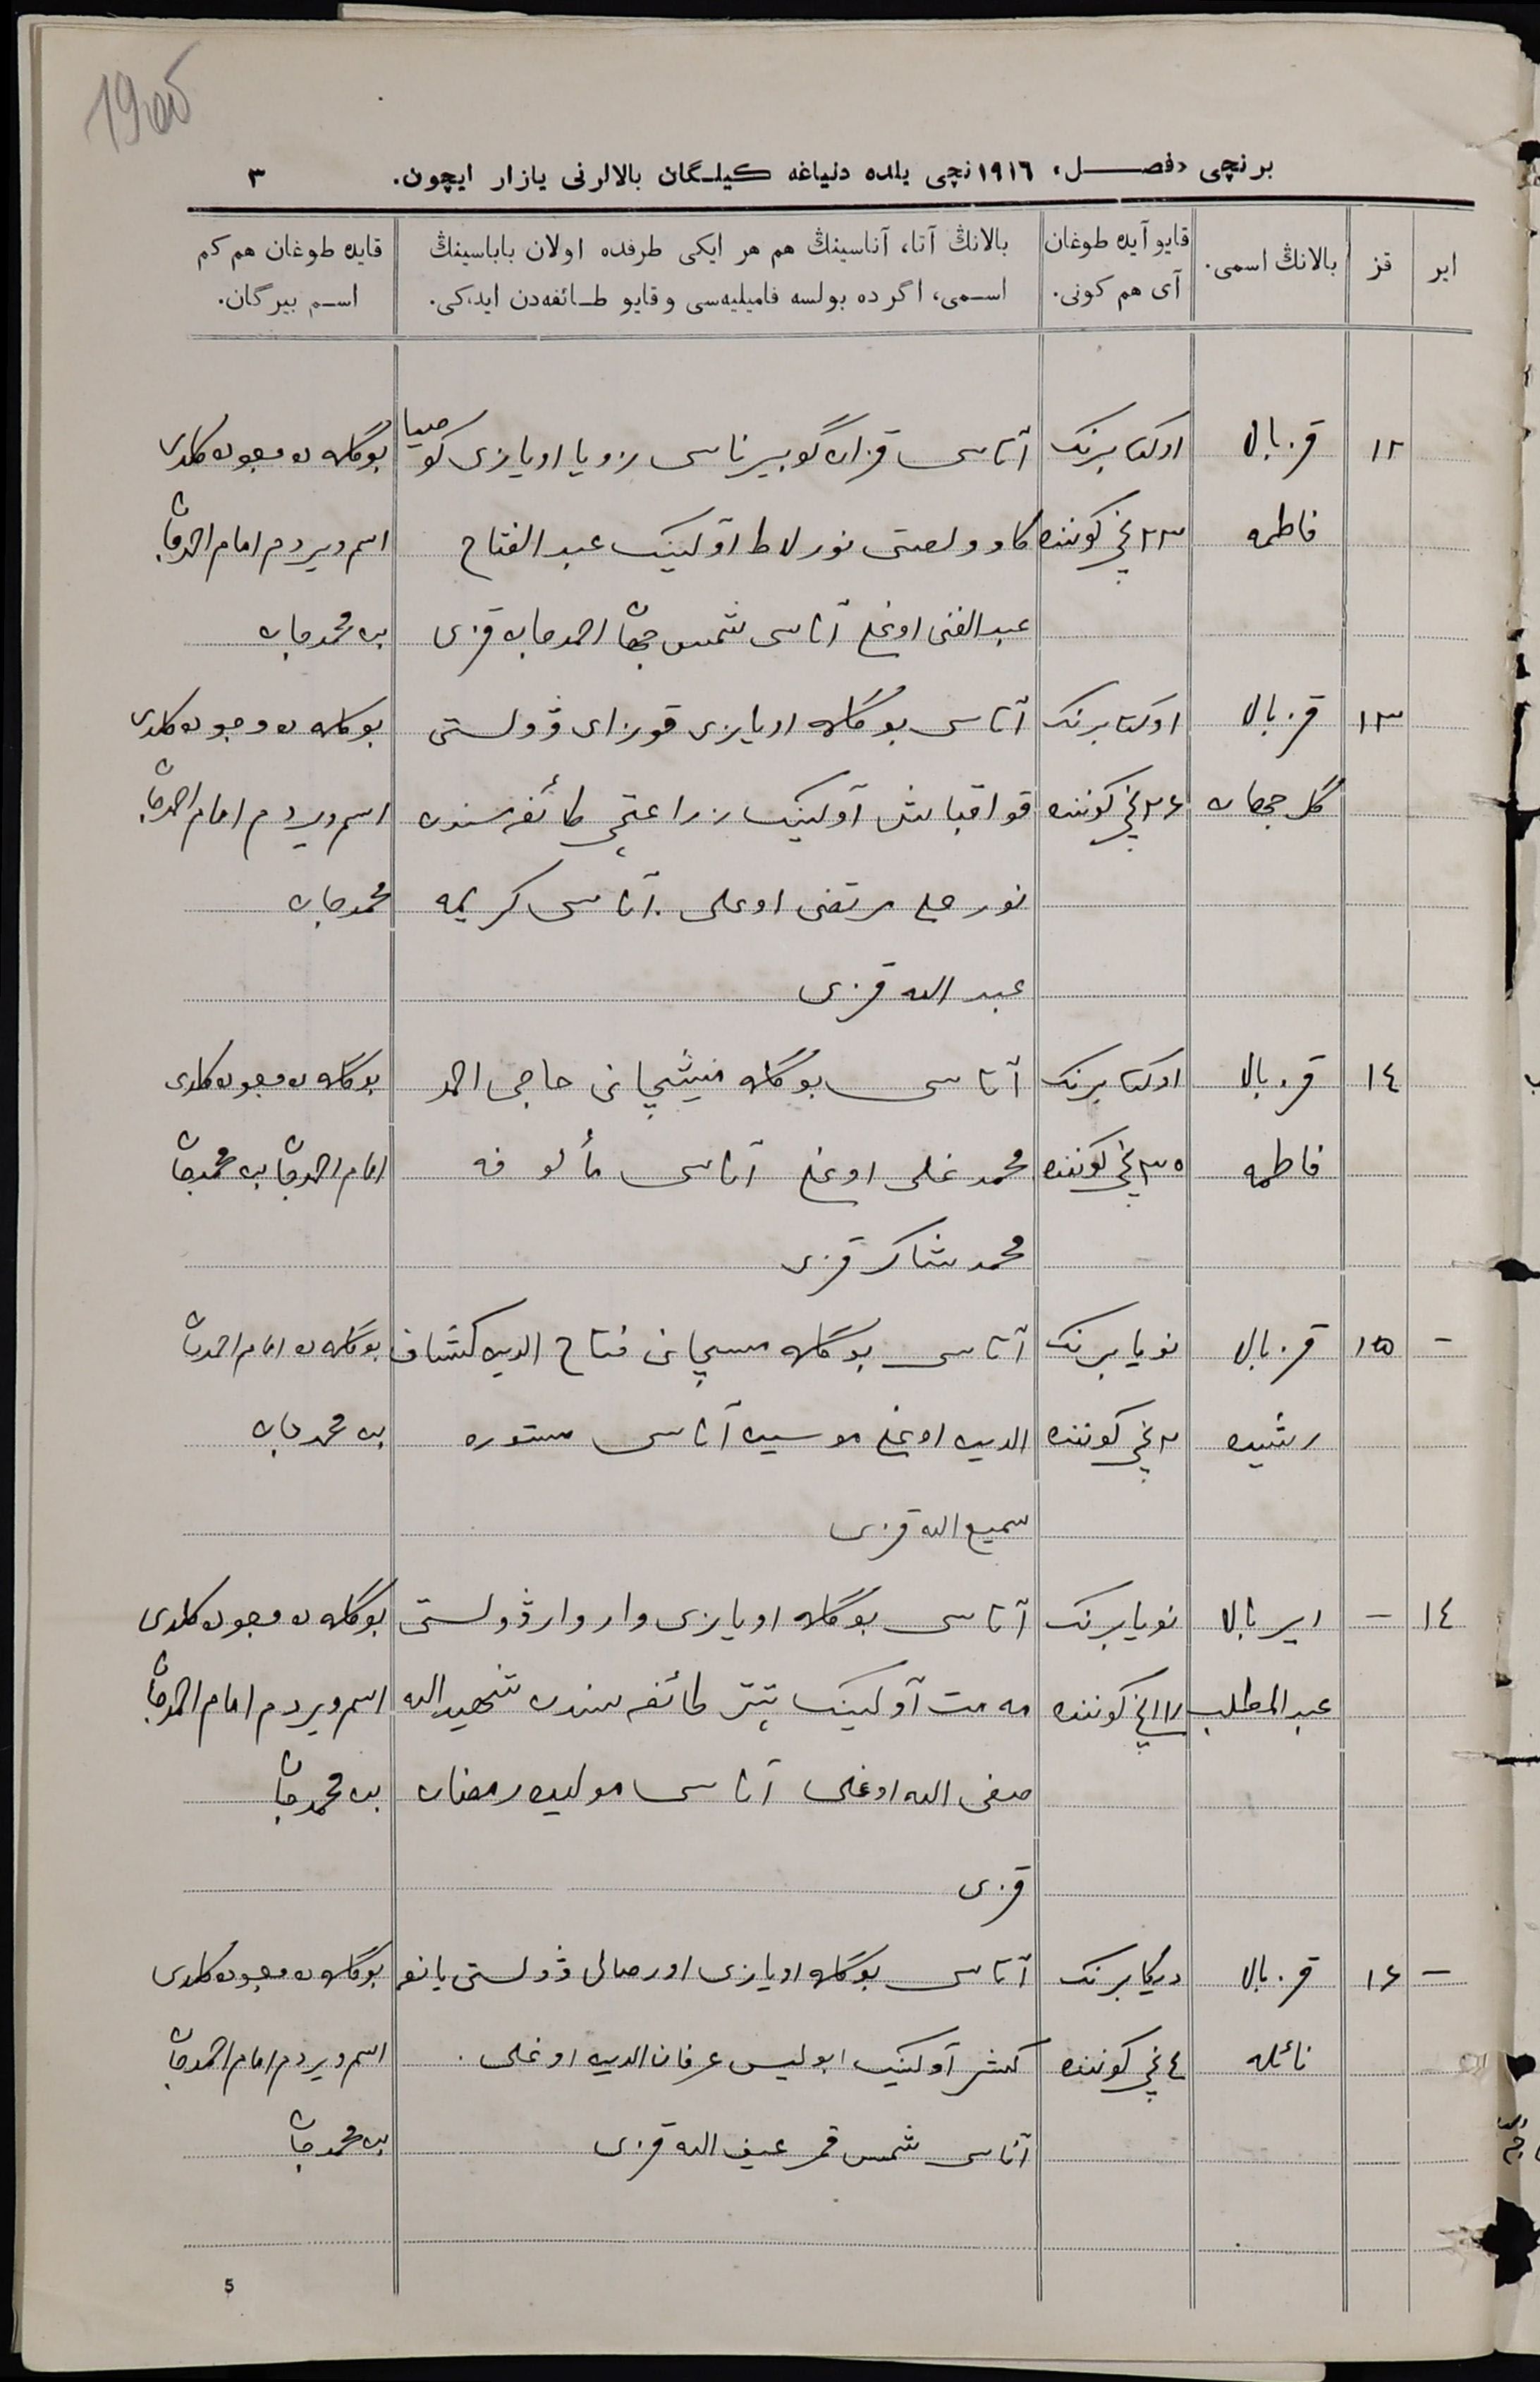 1906
برنچی «فصل» ١٩١٦نچی یلده دنیاغه کیلگان بالالرنی یازار ایچون. ٣
ایر
قز
بالانڭ اسمی.
قایو آیده طوغان
آی هم کونی.
بالانڭ آتا، آناسینڭ هم هر ایکی طرفده اولان باباسینڭ
اسمی، اگر ده بولسه فامیلیه‌سی و قایو طائفه‌دن ایدکی.
قایده طوغان هم کم
اسم بیرگان.
١٢
قز بالا
فاطمه
اوکتابرنک
٢٣نچی کوننده
آتاسی قزان گوبیرناسی زویا اویازی کو
عبد الفتاح
عبد الغنی اوغلی آناسی شمس جهان احمدجان قزی
اسم ویردم امام احمدجان
بن محمدجان
١٣
قز بالا
گل جهان
اوکتابرنک
٢٦نچی کوننده
آتاسی بوگلمه اویازی ڤولستی
آولینک زراعتچی طائفه‌سندن
نور علی مرتضی اوغلی. آناسی کریمه
عبد الله قزی
بوگلمه ده وجوده کلدی
اسم ویردم امام احمدجان
محمدجان
١٤
قز بالا
فاطمه
اوکتابرنک
٣٥نچی کوننده
آتاسی بوگلمه میشچانی حاجی احمد
محمد علی اوغلی آناسی مألوفه
محمد شاکر قزی
بوگلمه ده وجوده کلدی
امام احمدجان بن محمدجان
–
١٥
قز بالا
رشیده
نویابرنک
٢نچی کوننده
آتاسی بوگلمه مسچانی فتاح الدین کشاف
الدین اوغلی آناسی مستوره
سمیع الله قزی
بوگلمه ده امام احمدجان
بن محمدجان
١٤
–
ایر بالا
عبد المطلب
نویابرنک
١٧نچی کوننده
آتاسی بوگلمه اویازی ڤولستی
آولینک تپتر طائفه سندن شهید الله
صفی الله اوغلی آناسی رمضان
قزی
بوگلمه ده وجوده کلدی
اسم ویردم امام احمدجان
بن محمدجان
–
١٦
قز بالا
نائله
دیکابرنک
٤نچی کوننده
آتاسی بوگلمه اویازی ڤولستی
آولینک ابولیس عرفان الدین اوغلی.
آناسی شمس قمر قزی
بوگلمه ده وجوده کلدی
اسم ویردم امام احمدجان
بن محمدجان
5